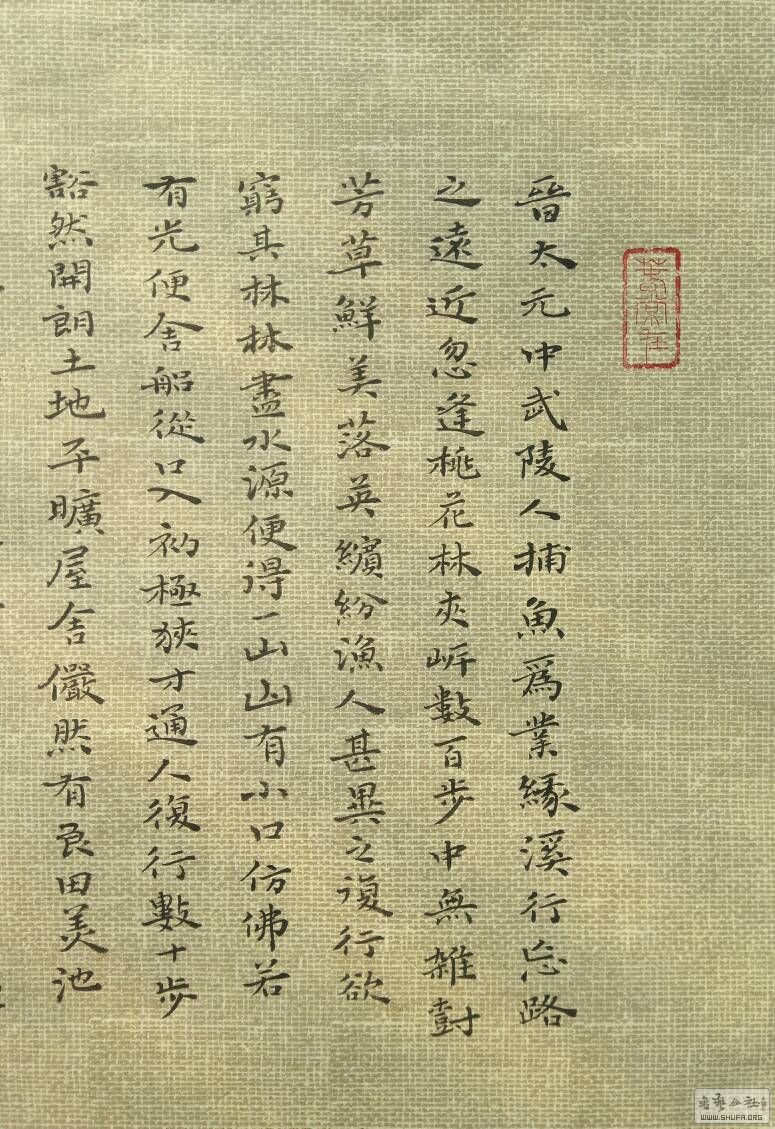 晉太元中武陵人捕魚爲業緣溪行忘路
之遠近忽逢桃花林夾岸數百步中無雜樹
芳草鮮美落英繽紛漁人甚異之復行欲
窮其林林盡水源便得一山山有小口仿佛若
有光便舍船從口入初極狹才通人復行數十步
豁然開朗土地平曠屋舍儼然有良田美池
书艺公社
WWW.SHUFA.ORG